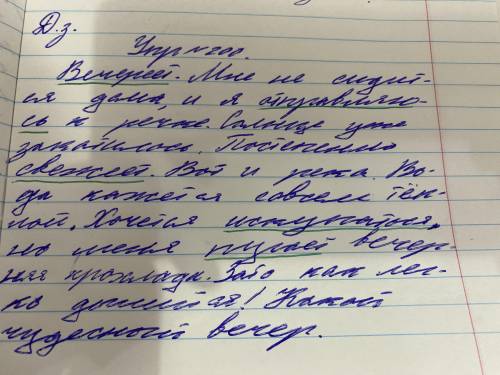 Д.з.
Упр №200.
Вечереет. Мне не сидит-
ся дома, и я отправляю-
сь к речке. Солнце уже
закатилось. Постепенно
свежеет. Вот и река. Во-
да кажется совсем тём-
ной. Хочется искупаться,
но меня пугает вечер-
няя прохлада. Зато как лег-
ко дышится! Какой
чудесный вечер.